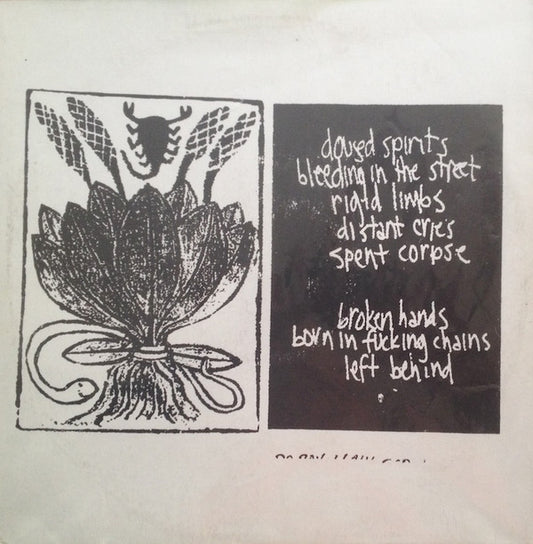 douged spirits
bleeding in the street
rigid limbs
distant cries
spent corpse
broken hands
born in fucking chains
left behind